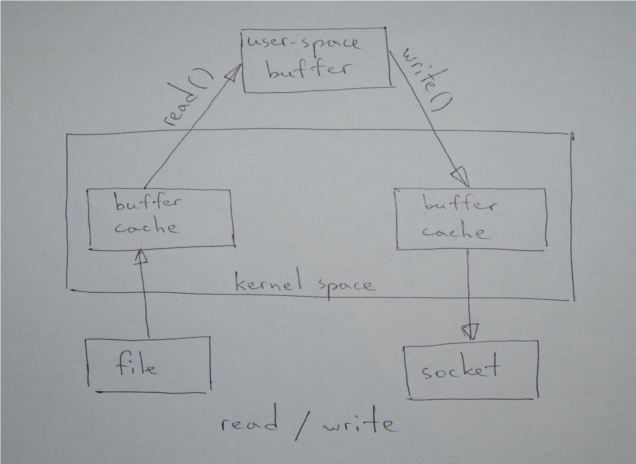 user-space
buffer
read()
write()
buffer
cache
buffer
cache
kernel space
file
socket
read / write